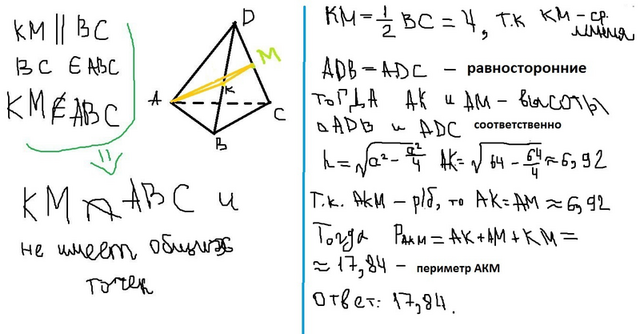 KM || BC
BC ∈ ABC
KM ∉ ABC
⇓
KM ⋂ ABC и
не имеет общих
точек
D
M
K
A
C
B
KM = 1/2 BC = 4, т.к KM - ср.
линия
ADB = ADC — равносторонние
тогда AK и AM - высоты
△ADB и ADC соответственно
h = √(a² - a²/4) AK = √(64 - 64/4) ≈ 6,92
Т.к. AKM - р/б, то AK = AM ≈ 6,92
Тогда P_AKM = AK + AM + KM =
≈ 17,84 - периметр АКМ
Ответ: 17,84.